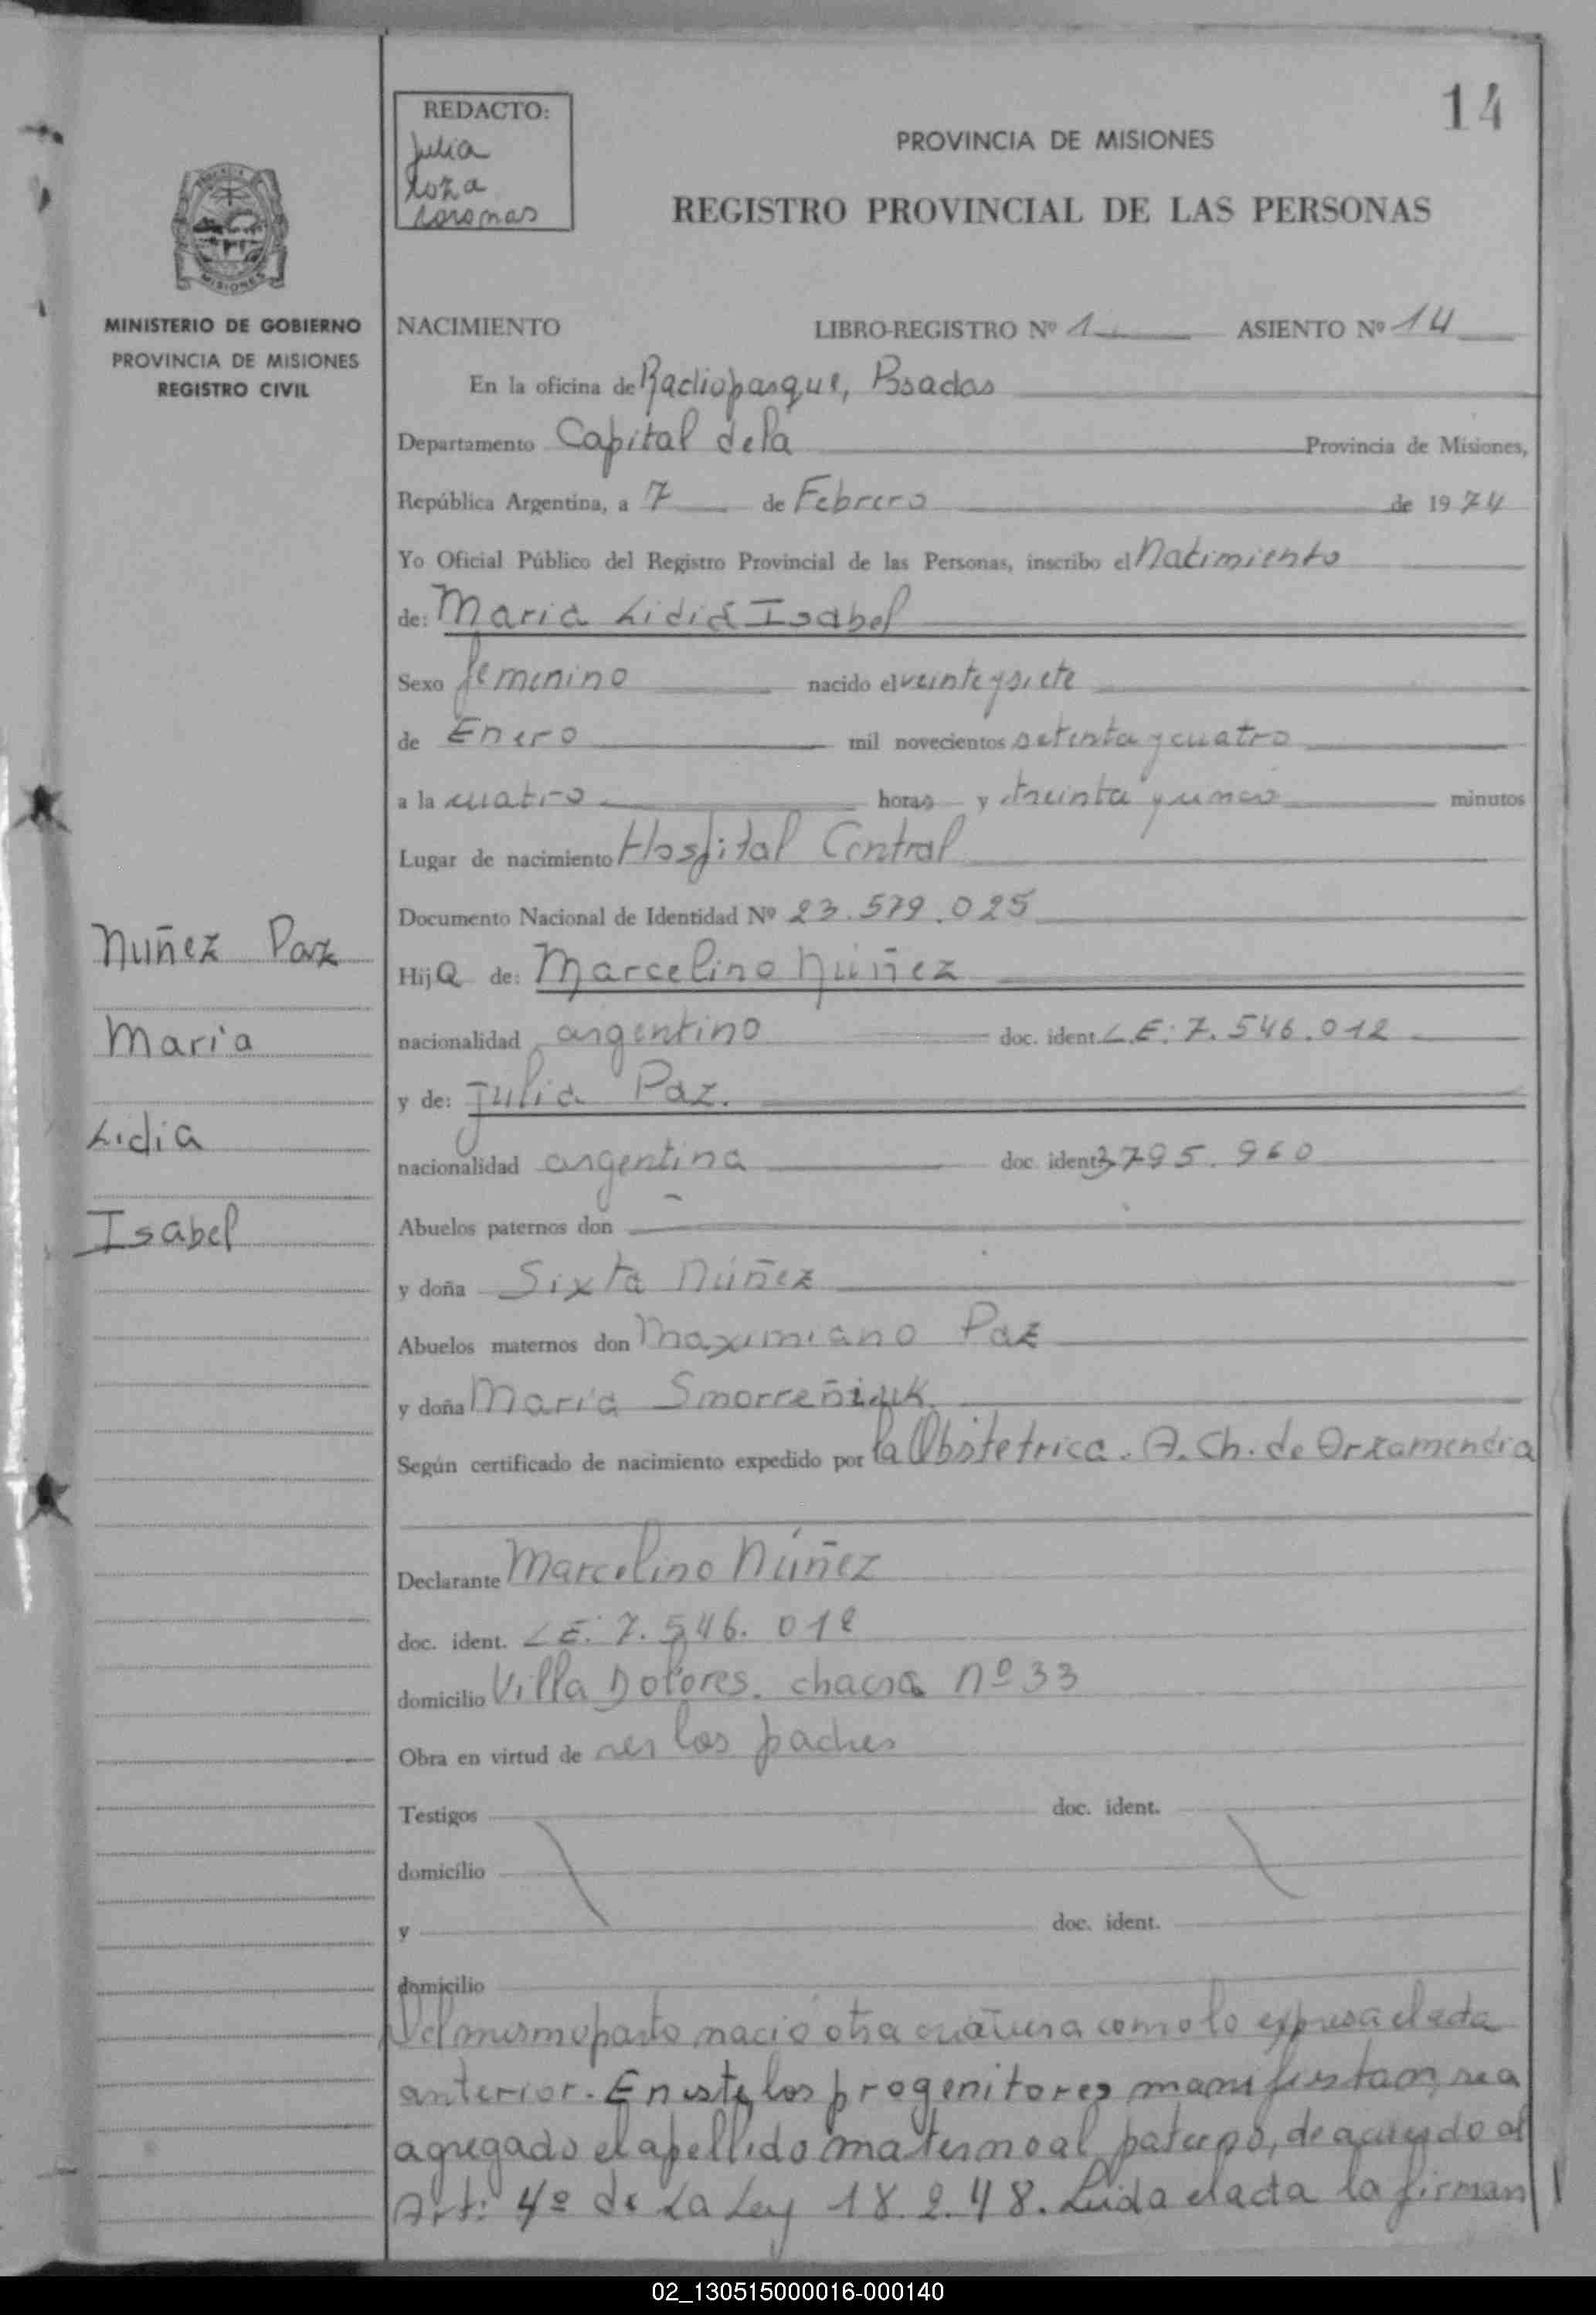 14
REDACTO:
Julia
Loza
Coromas
PROVINCIA DE MISIONES
REGISTRO PROVINCIAL DE LAS PERSONAS
MISIONES
MINISTERIO DE GOBIERNO
PROVINCIA DE MISIONES
REGISTRO CIVIL
NACIMIENTO LIBRO-REGISTRO Nº 1 ASIENTO Nº 14
En la oficina de Radioparque, Posadas
Departamento Capital dela Provincia de Misiones,
República Argentina, a 7 de Febrero de 1974
Yo Oficial Público del Registro Provincial de las Personas, inscribo el nacimiento
de: Maria Lidia Isabel
Sexo femenino nacido el veinte y siete
de Enero mil novecientos setenta y cuatro
a la cuatro horas y treinta y cinco minutos
Lugar de nacimiento Hospital Central
Documento Nacional de Identidad Nº 23.579.025
Hija de: Marcelino Núñez
nacionalidad argentino doc. ident. L.E: 7.546.012
y de: Julia Paz.
nacionalidad argentina doc. ident. 3795.960
Abuelos paternos don
y doña Sixta Núñez
Abuelos maternos don Maximiano Paz
y doña María Smorreñiuk.
Según certificado de nacimiento expedido por la Obstetrica. A. Ch. de Orzamendia
Declarante Marcelino Núñez
doc. ident. LE: 7.546.012
domicilio Villa Dolores. chacra nº 33
Obra en virtud de ser los padres
Testigos doc. ident.
domicilio
y doc. ident.
domicilio
Del mismo parto nació otra criatura como lo expresa el acta
anterior. En este los progenitores manifiestan, sea
agregado el apellido materno al paterno, de acuerdo al
Art: 4º de La Ley 18.248. Leida el acta la firman
Nuñez Paz
Maria
Lidia
Isabel
02_130515000016-000140